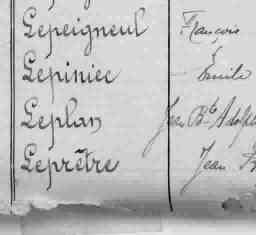 Lepeigneul François
Lepiniec – Emile
Leplan Jean Bte Adolp
Leprêtre Jean